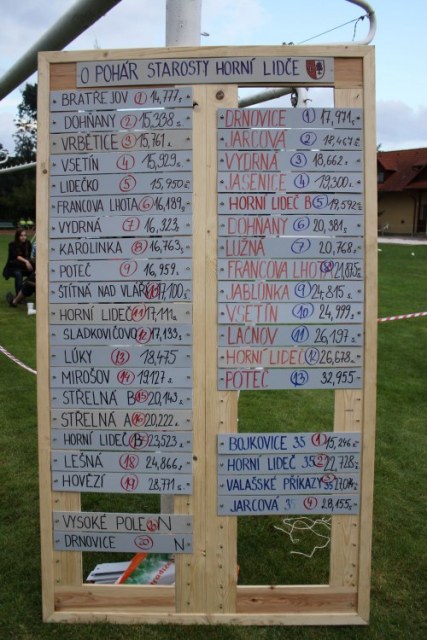 O POHÁR STAROSTY HORNÍ LIDČE
BRATŘEJOV 1 14,777
DOHŇANY 2 15,338
VRBĚTICE 3 15,761
VSETÍN 4 15,929
LIDEČKO 5 15,950
FRANCOVA LHOTA 6 16,189
VYDRNÁ 7 16,323
KAROLINKA 8 16,763
POTEČ 9 16,959
ŠTÍTNÁ NAD VLÁŘÍ 17,100
HORNÍ LIDEČ 11 17,111
SLADKOVIČOVO 12 17,133
LÚKY 13 18,475
MIROŠOV 14 19,127
STŘELNÁ B 15 20,143
STŘELNÁ A 16 20,222
HORNÍ LIDEČ 23,523
LEŠNÁ 18 24,866
HOVĚZÍ 19 28,771
VYSOKÉ POLE N
DRNOVICE N
DRNOVICE 1 17,971
JARCOVÁ 2 18,467
VYDRNÁ 3 18,662
JASENICE 4 19,300
HORNÍ LIDEČ B 5 19,592
DOHŇANY 6 20,381
LUŽNÁ 7 20,768
FRANCOVA LHOTA 21,875
JABLŮNKA 9 24,815
VSETÍN 10 24,999
LAČNOV 11 26,197
HORNÍ LIDEČ 12 26,678
POTEČ 13 32,955
BOJKOVICE 35 1 15,246
HORNÍ LIDEČ 35 2 22,728
VALAŠSKÉ PŘÍKAZY 35
JARCOVÁ 35 4 28,155